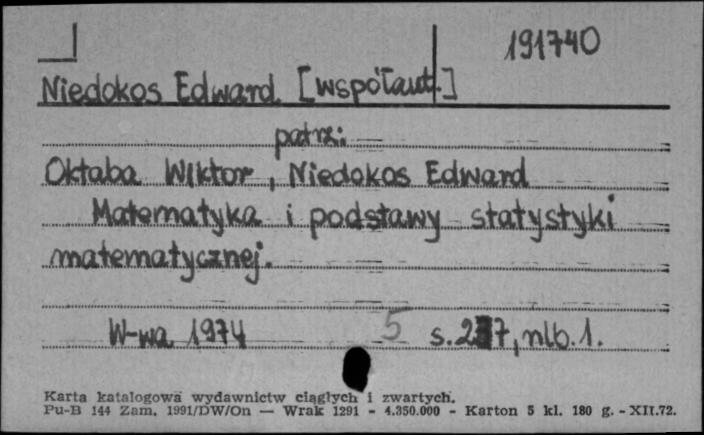 191740
Niedokos Edward [współaut.]
patrz:
Oktaba Wiktor, Niedokos Edward
Matematyka i podstawy statystyki
matematycznej.
W-wa 1974 5 s. 237, nlb. 1.
Karta katalogowa wydawnictw ciągłych i zwartych.
Pu-B 144 Zam. 1991/DW/On — Wrak 1291 - 4.350.000 - Karton 5 kl. 180 g. - XII.72.